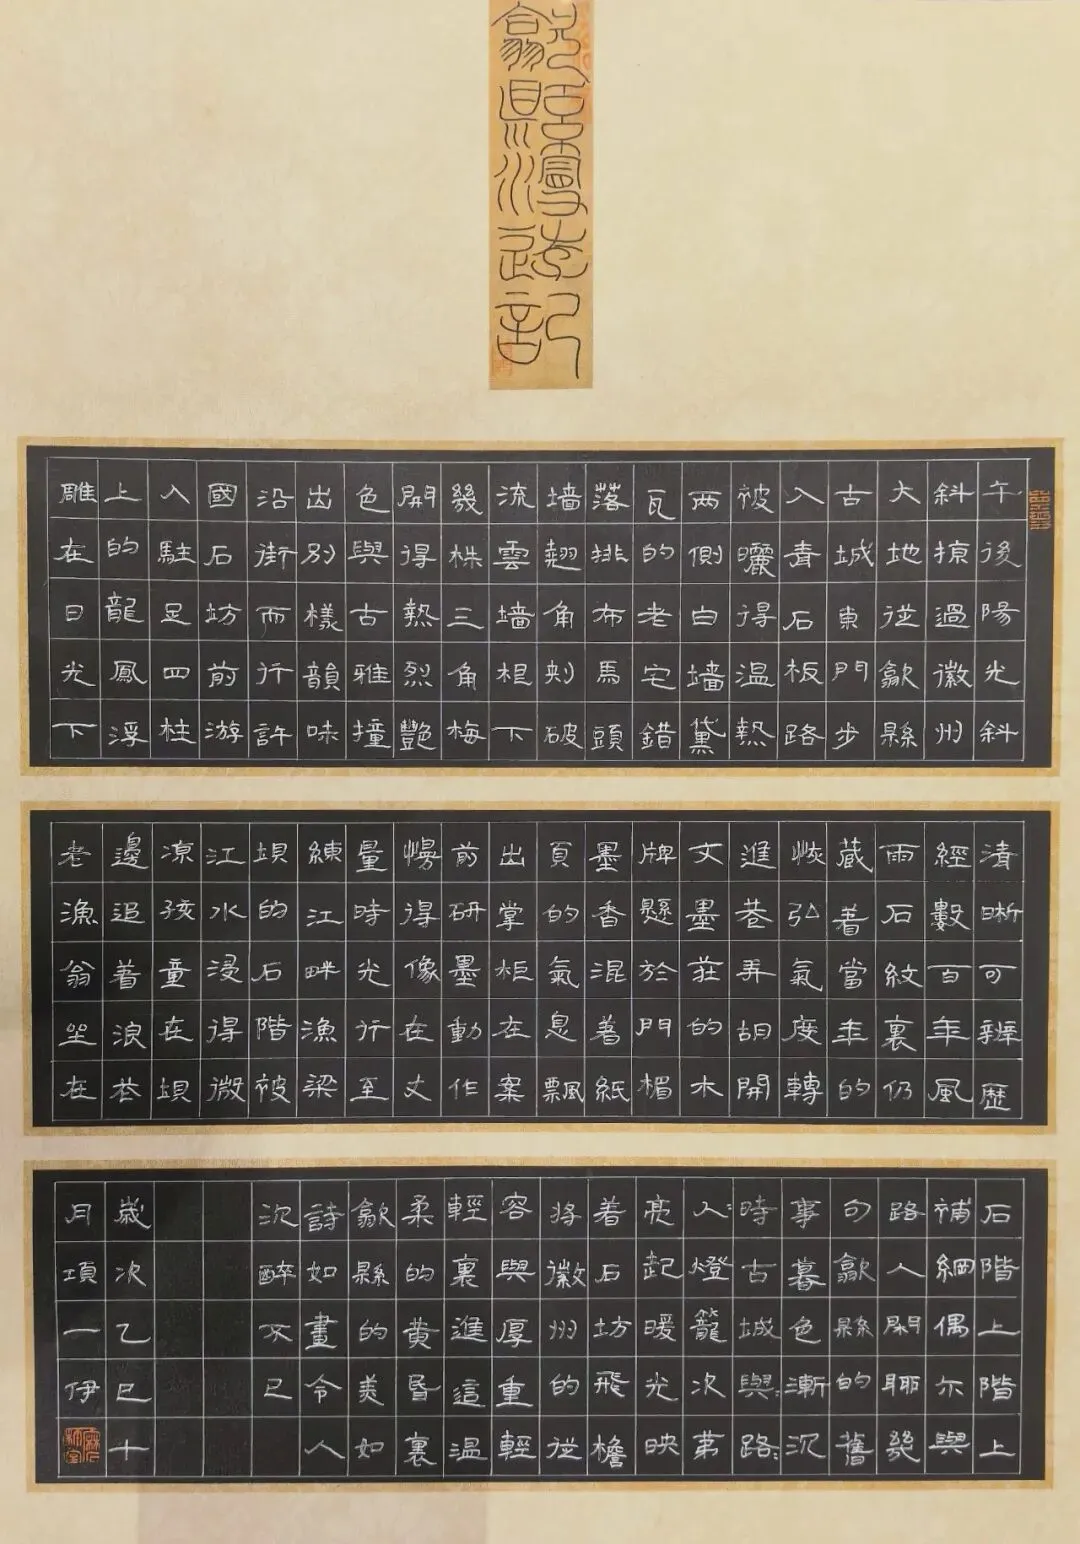 歙縣漫遊記
午後陽光斜
斜掠過徽州
大地從歙縣
古城東門步
入青石板路
被曬得溫熱
两側白墙黛
瓦的老宅錯
落排布馬頭
墙翹角刺破
流雲墙根下
幾株三角梅
開得熱烈艷
色與古雅撞
出别樣韻味
沿街而行許
國石坊前游
人駐足四柱
上的龍鳳浮
雕在日光下
清晰可辨歷
經數百年風
雨石紋裏仍
藏着當年的
恢弘氣度轉
進巷弄胡開
文墨莊的木
牌懸於門楣
墨香混着紙
頁的氣息飄
出掌柜在案
前研墨動作
慢得像在丈
量時光行至
練江畔漁梁
垻的石階被
江水浸得微
凉孩童在垻
邊追着浪花
老漁翁坐在
石階上階上
補網偶尔與
路人閑聊幾
句歙縣的舊
事暮色漸沉
時古城與路
人燈籠次第
亮起暖光映
着石坊飛檐
將徽州的從
容與厚重輕
輕裏進這溫
柔的黄昏裏
歙縣的美如
詩如畫令人
沉醉不已
歲次乙巳十
月項一伊